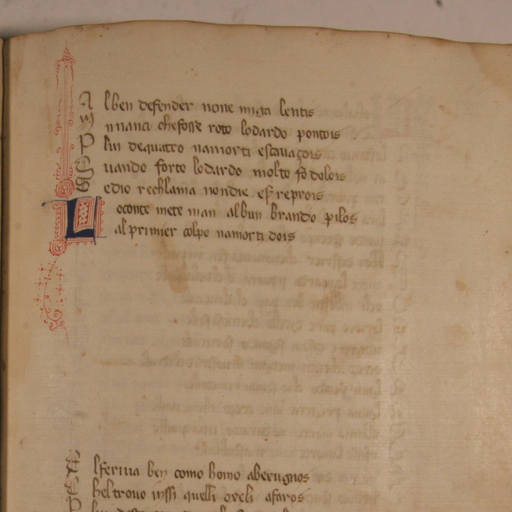 A lben defender none miga lentis
M nnanci che fosse roto lo dardo pontois
P lui de quatro namorti escauaçois
Q uando forto lo dardo molto fo dolois
S edio reclama non die esser reprois
L o conte mete man al bun brando pilos
al primier colpo namorti dois
A lferiua ben como homo aberugnos
kel trouo inssi quelli oreli afaros